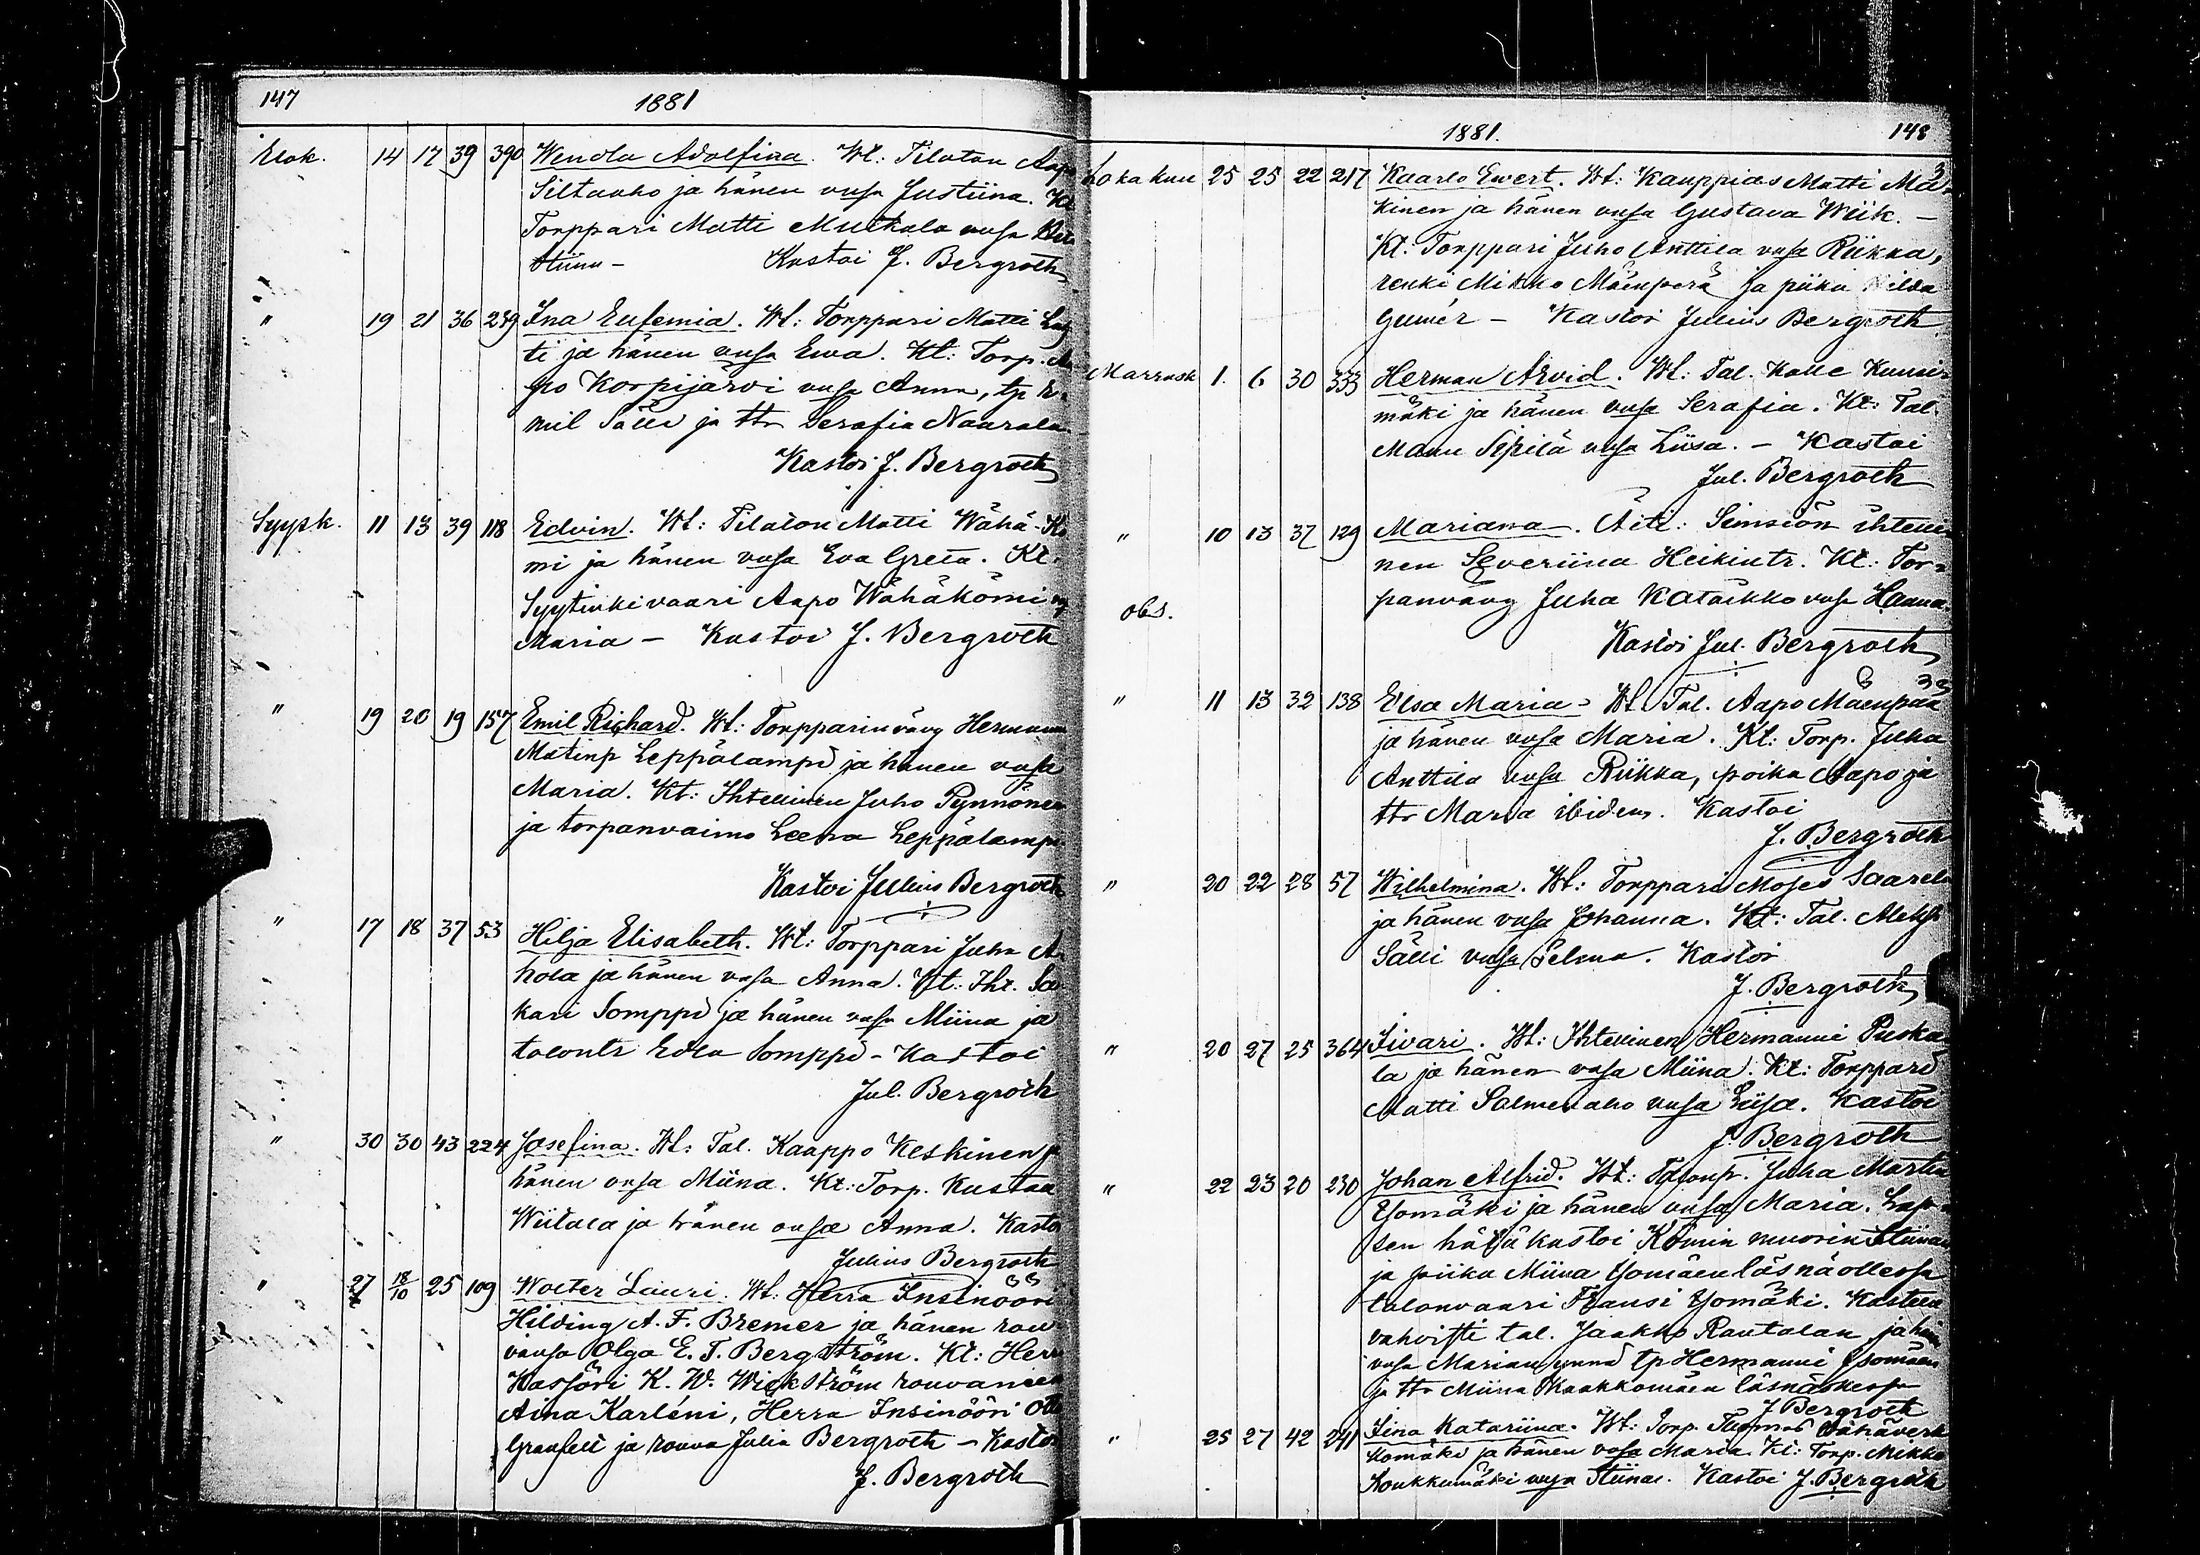 147 1881
Elok. 14 17 39 390 Wendla Adolfina. Wt: Tilaton Aapo
Siltaaho ja hänen vmsa Justiina. Kt
Torppari Matti Mutkala vmsa
Stiina - Kastoi J. Bergroth
" 19 21 36 239 Ina Eufemia. Wt: Torppari Matti
ti ja hänen vmsa Ewa. Kt: Torp. Aa
po Korpijärvi vmsa Anna, tp E
mil Sälli ja ttr Serafia Naarala
Kastoi J. Bergroth
Syysk. 11 13 39 118 Edvin. Wt: Tilaton Matti Wähä-Kö
mi ja hänen vmsa Eva Greta. Kt.
Syytinkivaari Aapo Wähäkömi
Maria - Kastoi J. Bergroth
" 19 20 19 157 Emil Richard. Wt: Torpparinvävy Hermanni
Matinp Leppälampi ja hänen vmsa
Maria. Kt: Ihtellinen Juho Pynnönen
ja torpanvaimo Leena Leppälampi
Kastoi Julius Bergroth
" 17 18 37 53 Hilja Elisabeth. Wt: Torppari Juha A
hola ja hänen vmsa Anna. Kt: Iht. Sa
kari Somppi ja hänen vmsa Miina ja
talontr Edla Somppi - Kastoi
Jul. Bergroth
" 30 30 43 224 Josefina. Wt: Tal. Kaappo Keskinen ja
hänen vmsa Miina. Kt: Torp. Kustaa
Wiitala ja hänen vmsa Anna. Kastoi
Julius Bergroth
" 27 18/10 25 109 Wolter Lauri. Wt: Herra Insinööri
Hilding A. F. Bremer ja hänen rou
vansa Olga E. T. Bergström. Kt: Herra
K. W. Wickström rouvaneen
Aina Karléni, Herra Insinööri Otto
Granfelt ja rouva Julia Bergroth - Kastoi
J. Bergroth
1881. 148
Lokakuu 25 25 22 217 Kaarlo Ewert. Wt: Kauppias Matti Mä
kinen ja hänen vmsa Gustava Wiik. -
Kt: Torppari Juho Anttila vmsa Riikka,
renki Mikko Mäenperä ja piika Hilda
Gumér - Kastoi Julius Bergroth
Marrask 1. 6 30 333 Herman Arvid. Wt: Tal. Kalle Kuusi
mäki ja hänen vmsa Serafia. Kt: Tal.
Manu Sipilä vmsa Liisa. - Kastoi
Jul. Bergroth
" 10 13 37 129 Mariana. Äiti: Simsiön ihtelli
nen Severiina Heikintr. Kt: Tor=
panvävy Juha Kataikko vmsa Hanna.
obs.
Kastoi Jul. Bergroth
" 11 13 32 138 Elsa Maria - Wt. Tal. Aapo Mäenpää
ja hänen vmsa Maria. Kt: Torp. Juha
Anttila vmsa Riikka, poika Aapo ja
ttr Maria ibidem. Kastoi
J. Bergroth
" 20 22 28 57 Wilhelmina. Wt: Torppari Moses Saarela
ja hänen vmsa Johanna. Kt: Tal. Aleksi
Sälli vmsa Selma. Kastoi
J. Bergroth
" 20 27 25 364 Iivari. Wt: Ihtellinen Hermanni Puska
la ja hänen vmsa Miina. Kt: Torppari
Matti Salmenaho vmsa Liisa. Kastoi
J. Bergroth
" 22 23 20 230 Johan Alfrid. Wt: Talonp. Juha Martin
Yomäki ja hänen vmsa Maria. Lap
sen hätäkastoi Kömin muorin Stiina
ja piika Miina Yomäen läsnäollessa
talonvaari Fransi Yomäki. Kasteen
vahvisti tal. Jaakko Rautalan ja hän
vmsa Marian ynnä tp Hermanni Isomäen
ja ttr Miina Kaakkomäen läsnäollessa
J Bergroth
" 25 27 42 241 Iina Katariina. Wt: Torp. Tuomas Wähäverk
komäki ja hänen vmsa Maria. Kt: Torp. Mikko
Koukkumäki vmsa Stiina. Kastoi J. Bergroth